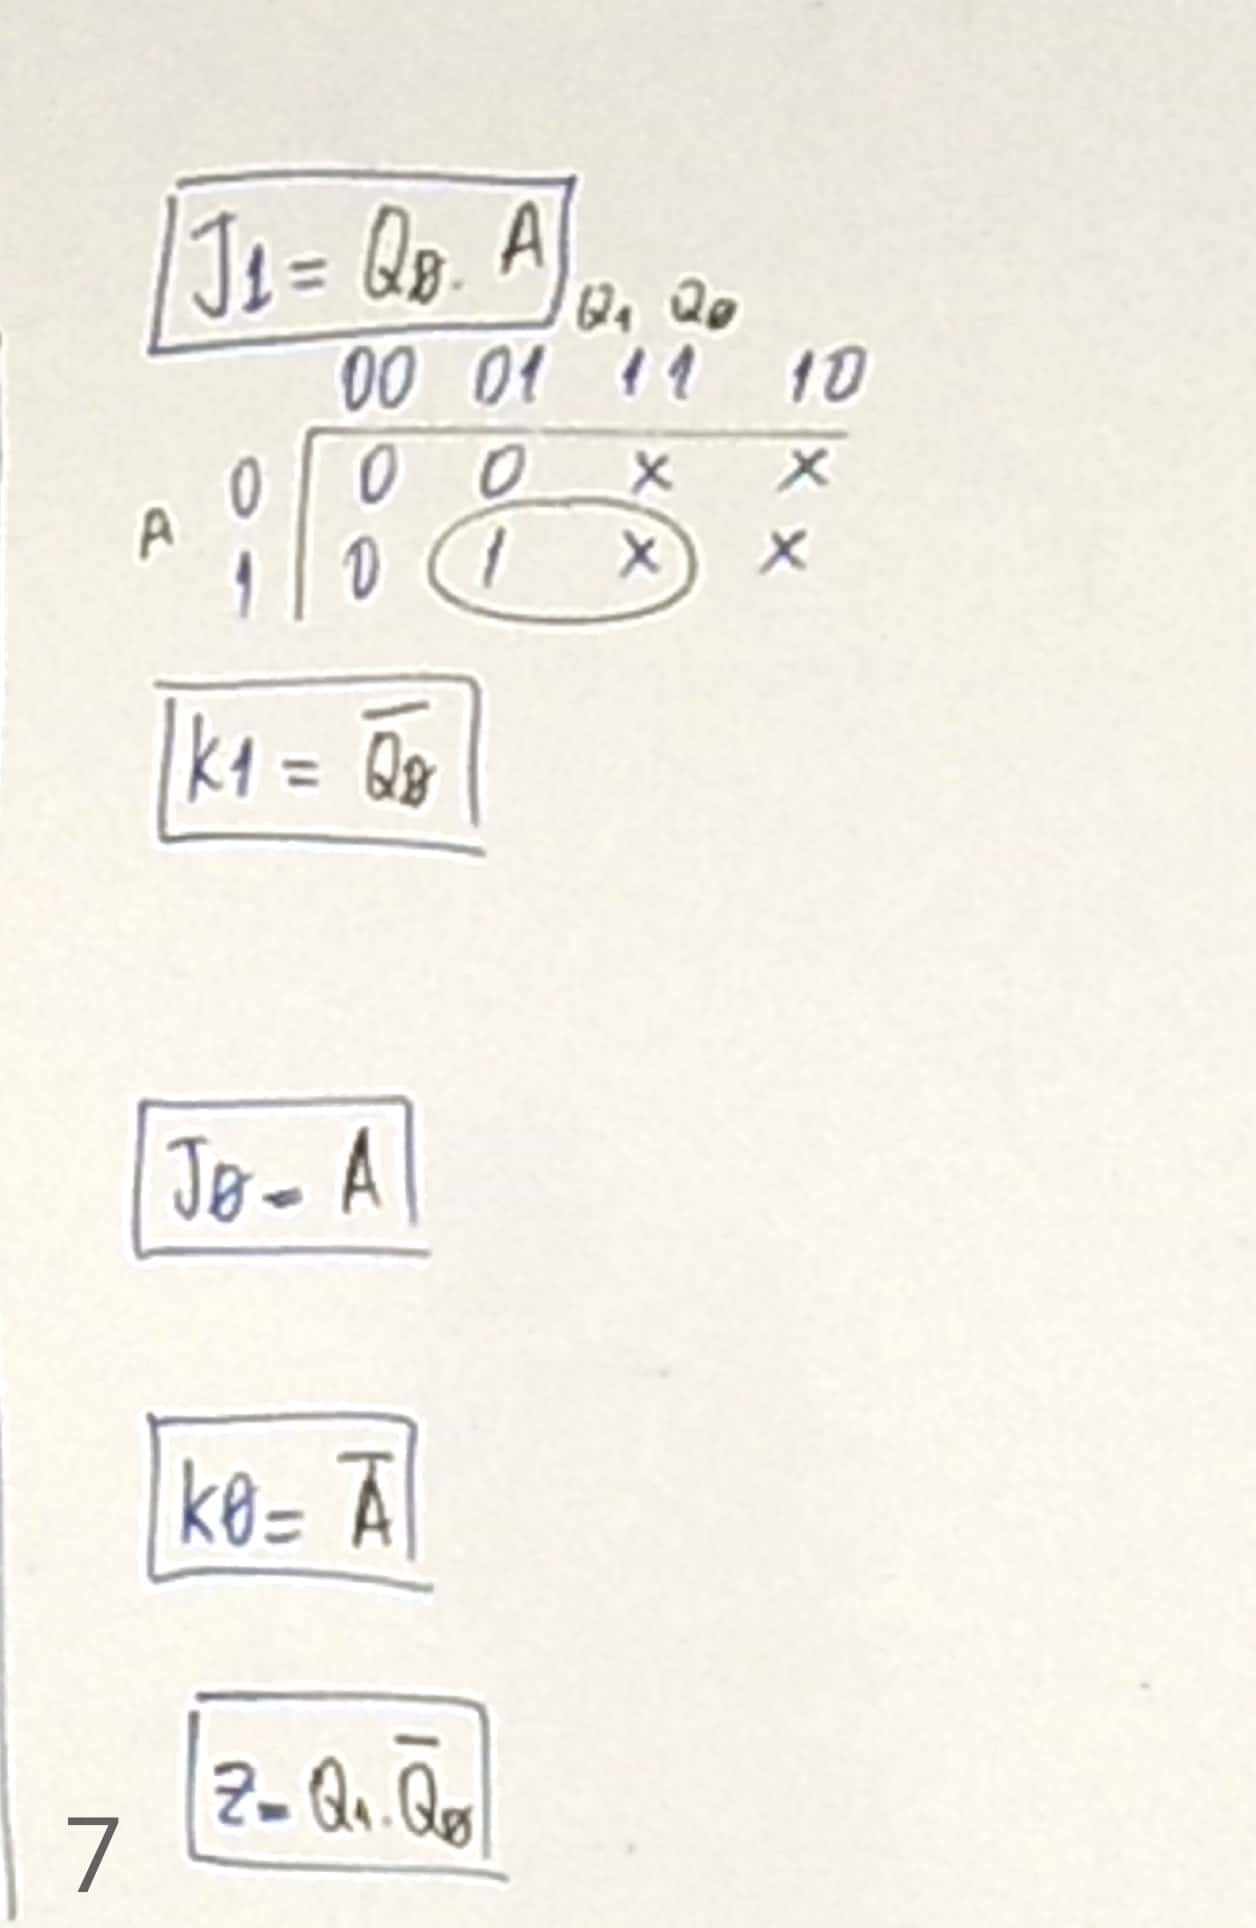 J1 = Q0. A
Q1 Q0
00 01 11 10
0 0 0 x x
A
1 0 1 x x
K1 = Q̅0
J0 = A
K0 = A̅
Z = Q1. Q̅0
7